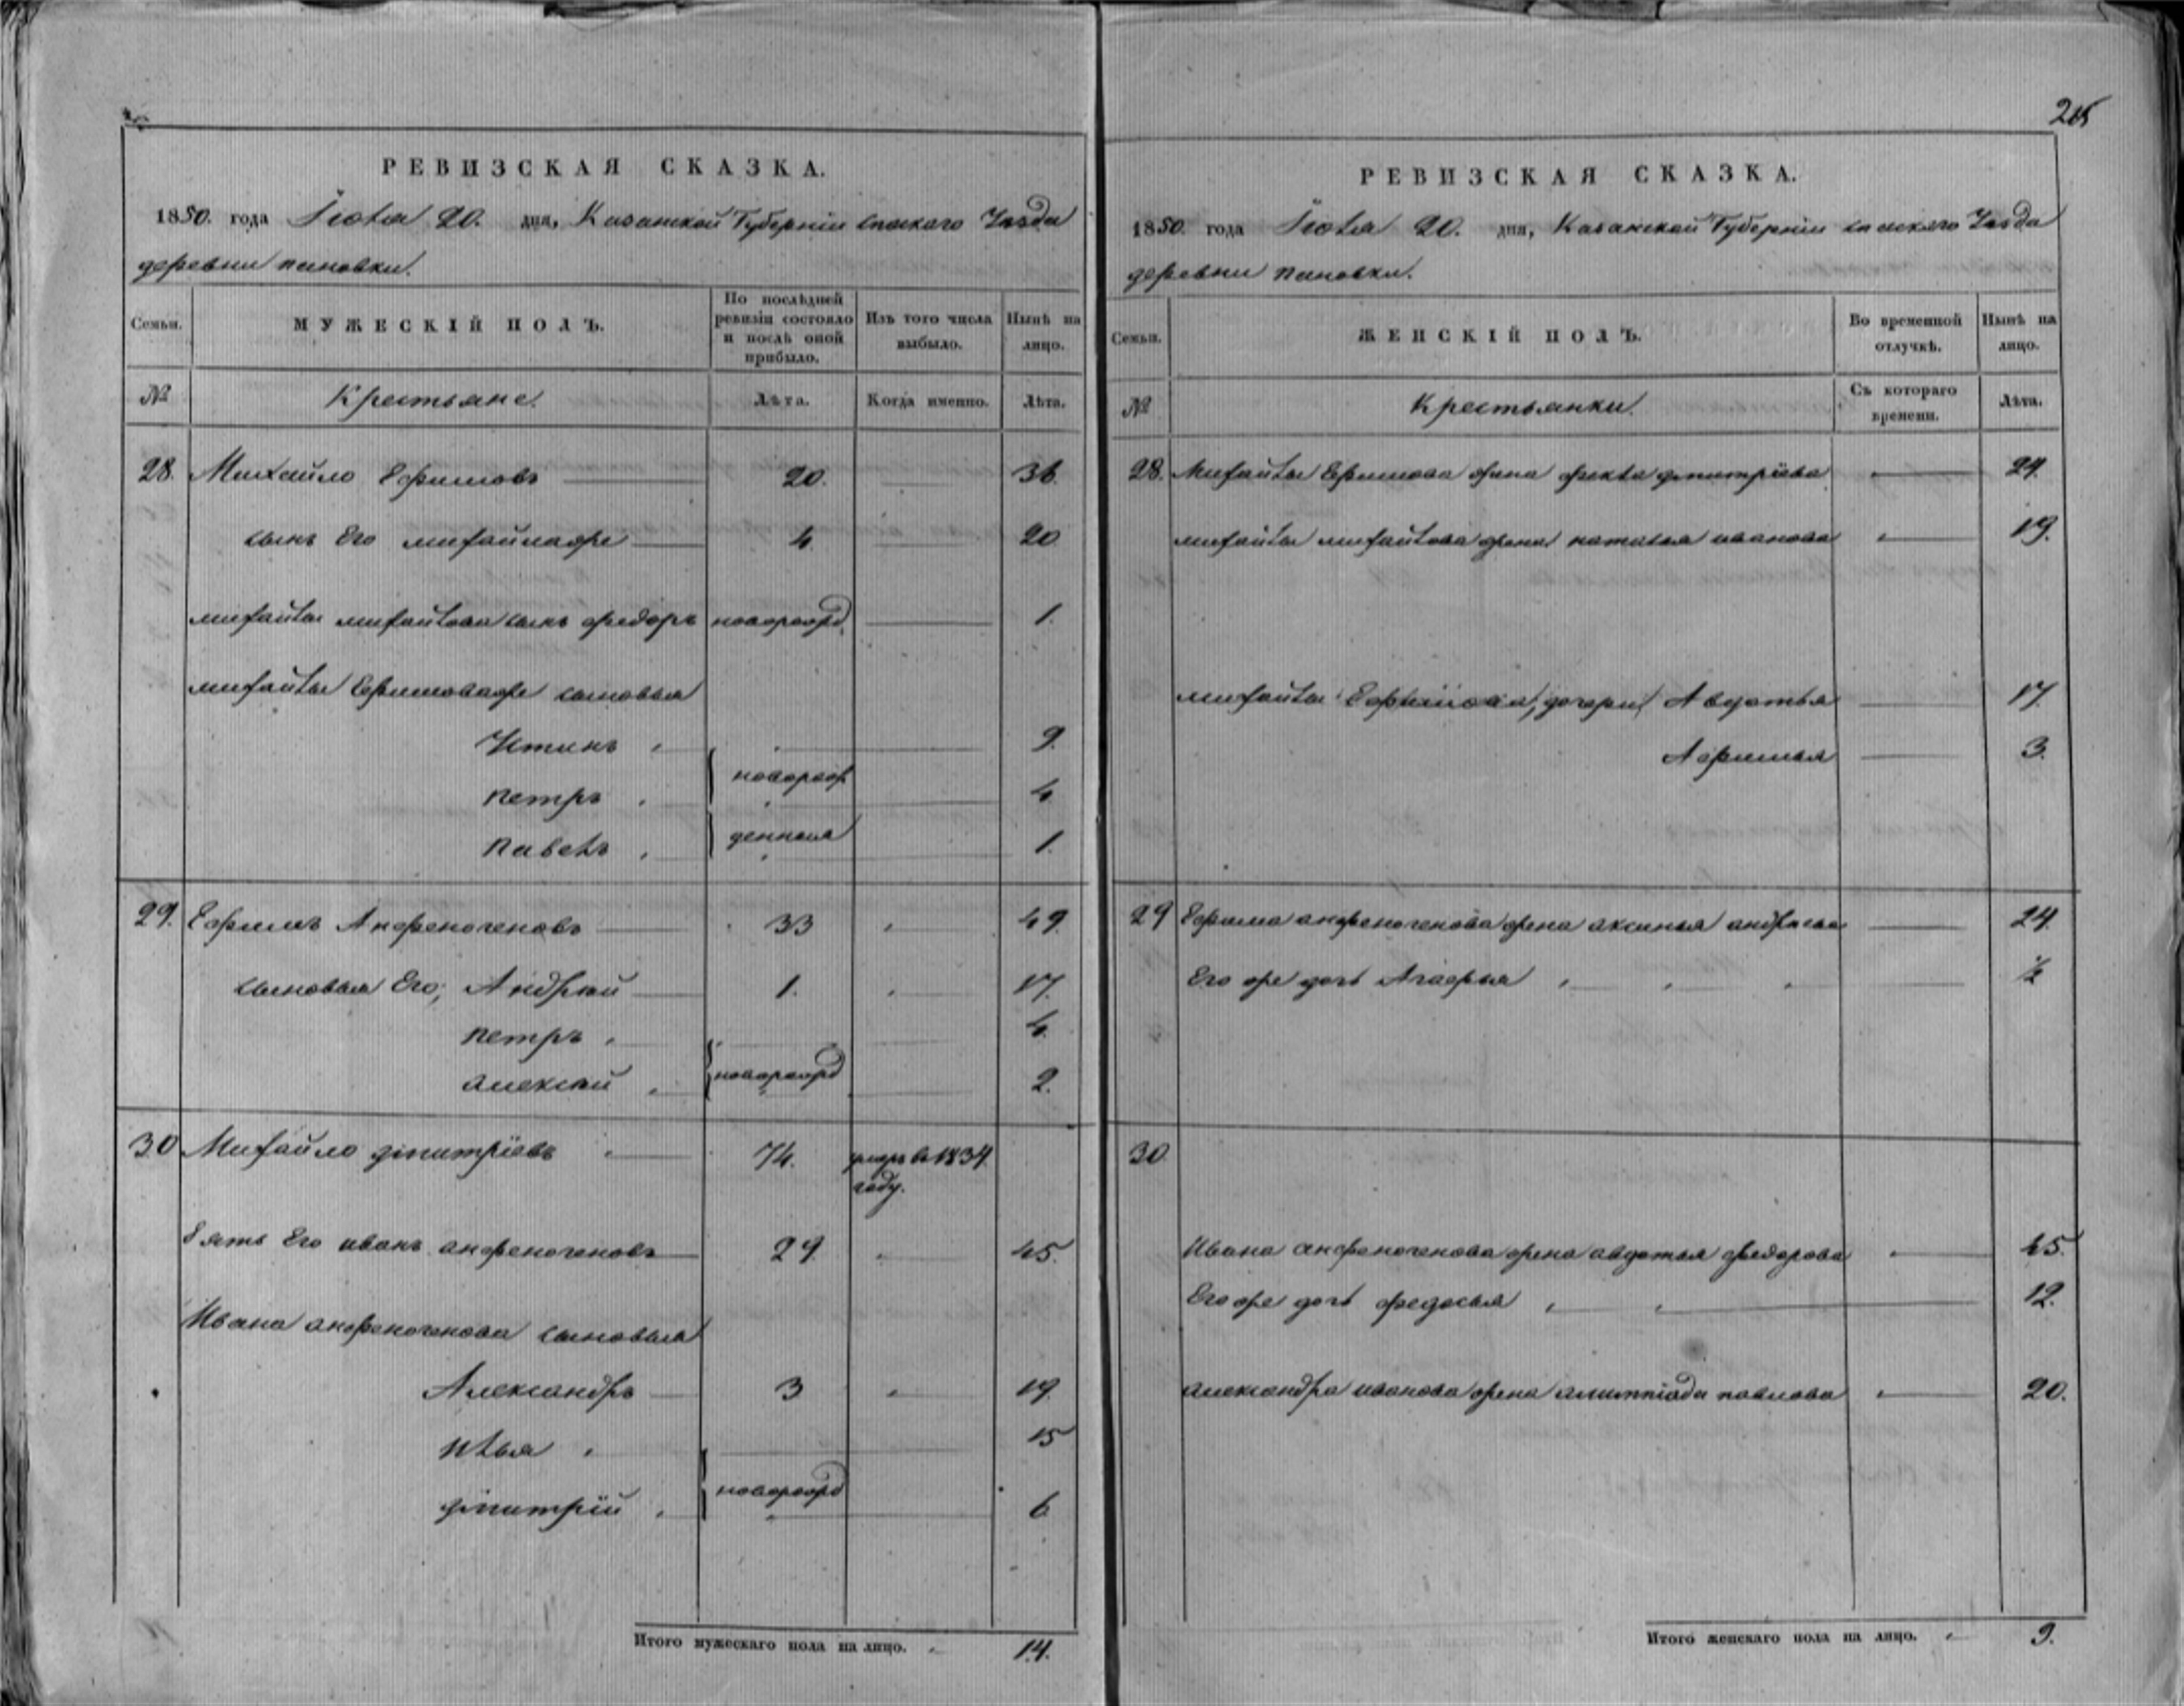 РЕВИЗСКАЯ СКАЗКА.
1850. года Іюля 20. дня, Казанской Губерніи спаскаго Уѣзда
деревни пановки.
Семьи.
МУЖЕСКІЙ ПОЛЪ.
По послѣдней ревизіи состояло и послѣ оной прибыло.
Изъ того числа выбыло.
Нынѣ на лицо.
№
Крестьяне.
Лѣта.
Когда именно.
Лѣта.
28. Михайло Ефимовъ 20. 36.
сынъ Его михайлаже 4 20
михайлы михайлова сынъ федоръ новорожд. 1.
михайлы Ефимоваже сыновья
Устинъ 9.
петръ новорож 4
павелъ денныя 1.
29. Ефимъ Анфеногеновъ 33 49.
сыновья Его; Андрѣй 1. 17.
петръ 4.
алексѣй новорожд 2.
30 Михайло дмитріевъ 74. умеръ в 1834
году.
Зять Его иванъ анфеногеновъ 29. 45.
Ивана анфеногенова сыновья
Александръ 3 19.
илья 15
дмитрій новорожд 6
Итого мужескаго пола на лицо. 14.
РЕВИЗСКАЯ СКАЗКА.
1850 года Іюля 20. дня, Казанской Губерніи спаскаго Уѣзда
деревни пановки.
Семьи.
ЖЕНСКІЙ ПОЛЪ.
Во временной отлучкѣ.
Нынѣ на лицо.
№
Крестьянки.
Съ котораго времени.
Лѣта.
28. Михайлы Ефимова жена фекла дмитріева
михайлы михайлова жена наталья иванова 19.
михайлы Ефимова, дочери Авдотья 17.
Афимья 3.
29 Ефима анфеногенова жена аксинья андрѣева
Его же дочь Агафья ½
30.
Ивана анфеногенова жена авдотья федорова 45.
Его же дочь федосья 12.
александра иванова жена алимпіада павлова 20.
Итого женскаго пола на лицо. 9.